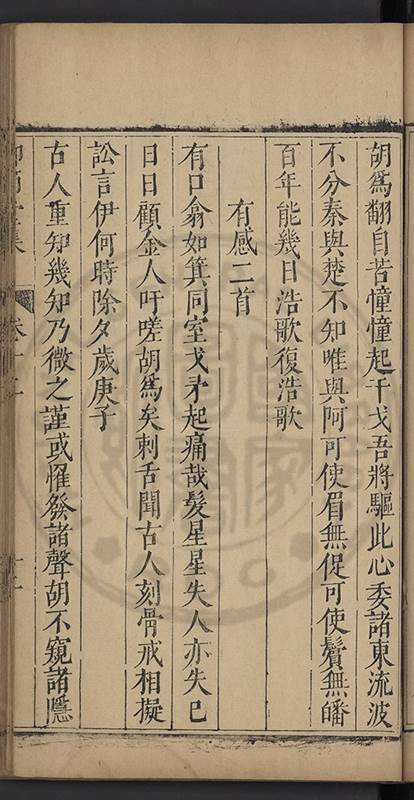 胡為翻自苦憧憧起干戈吾將驅此心委諸東流波
不分秦與楚不知唯與阿可使眉無促可使鬢無皤
百年能幾日浩歌復浩歌
有感二首
有口翕如箕同室戈矛起痛哉髮星星失人亦失已
日日顧金人吁嗟胡為矣刺舌聞古人刻骨戒相擬
訟言伊何時除夕歲庚子
古人重知幾知乃微之謹或懼發諸聲胡不窺諸隱
卷十二